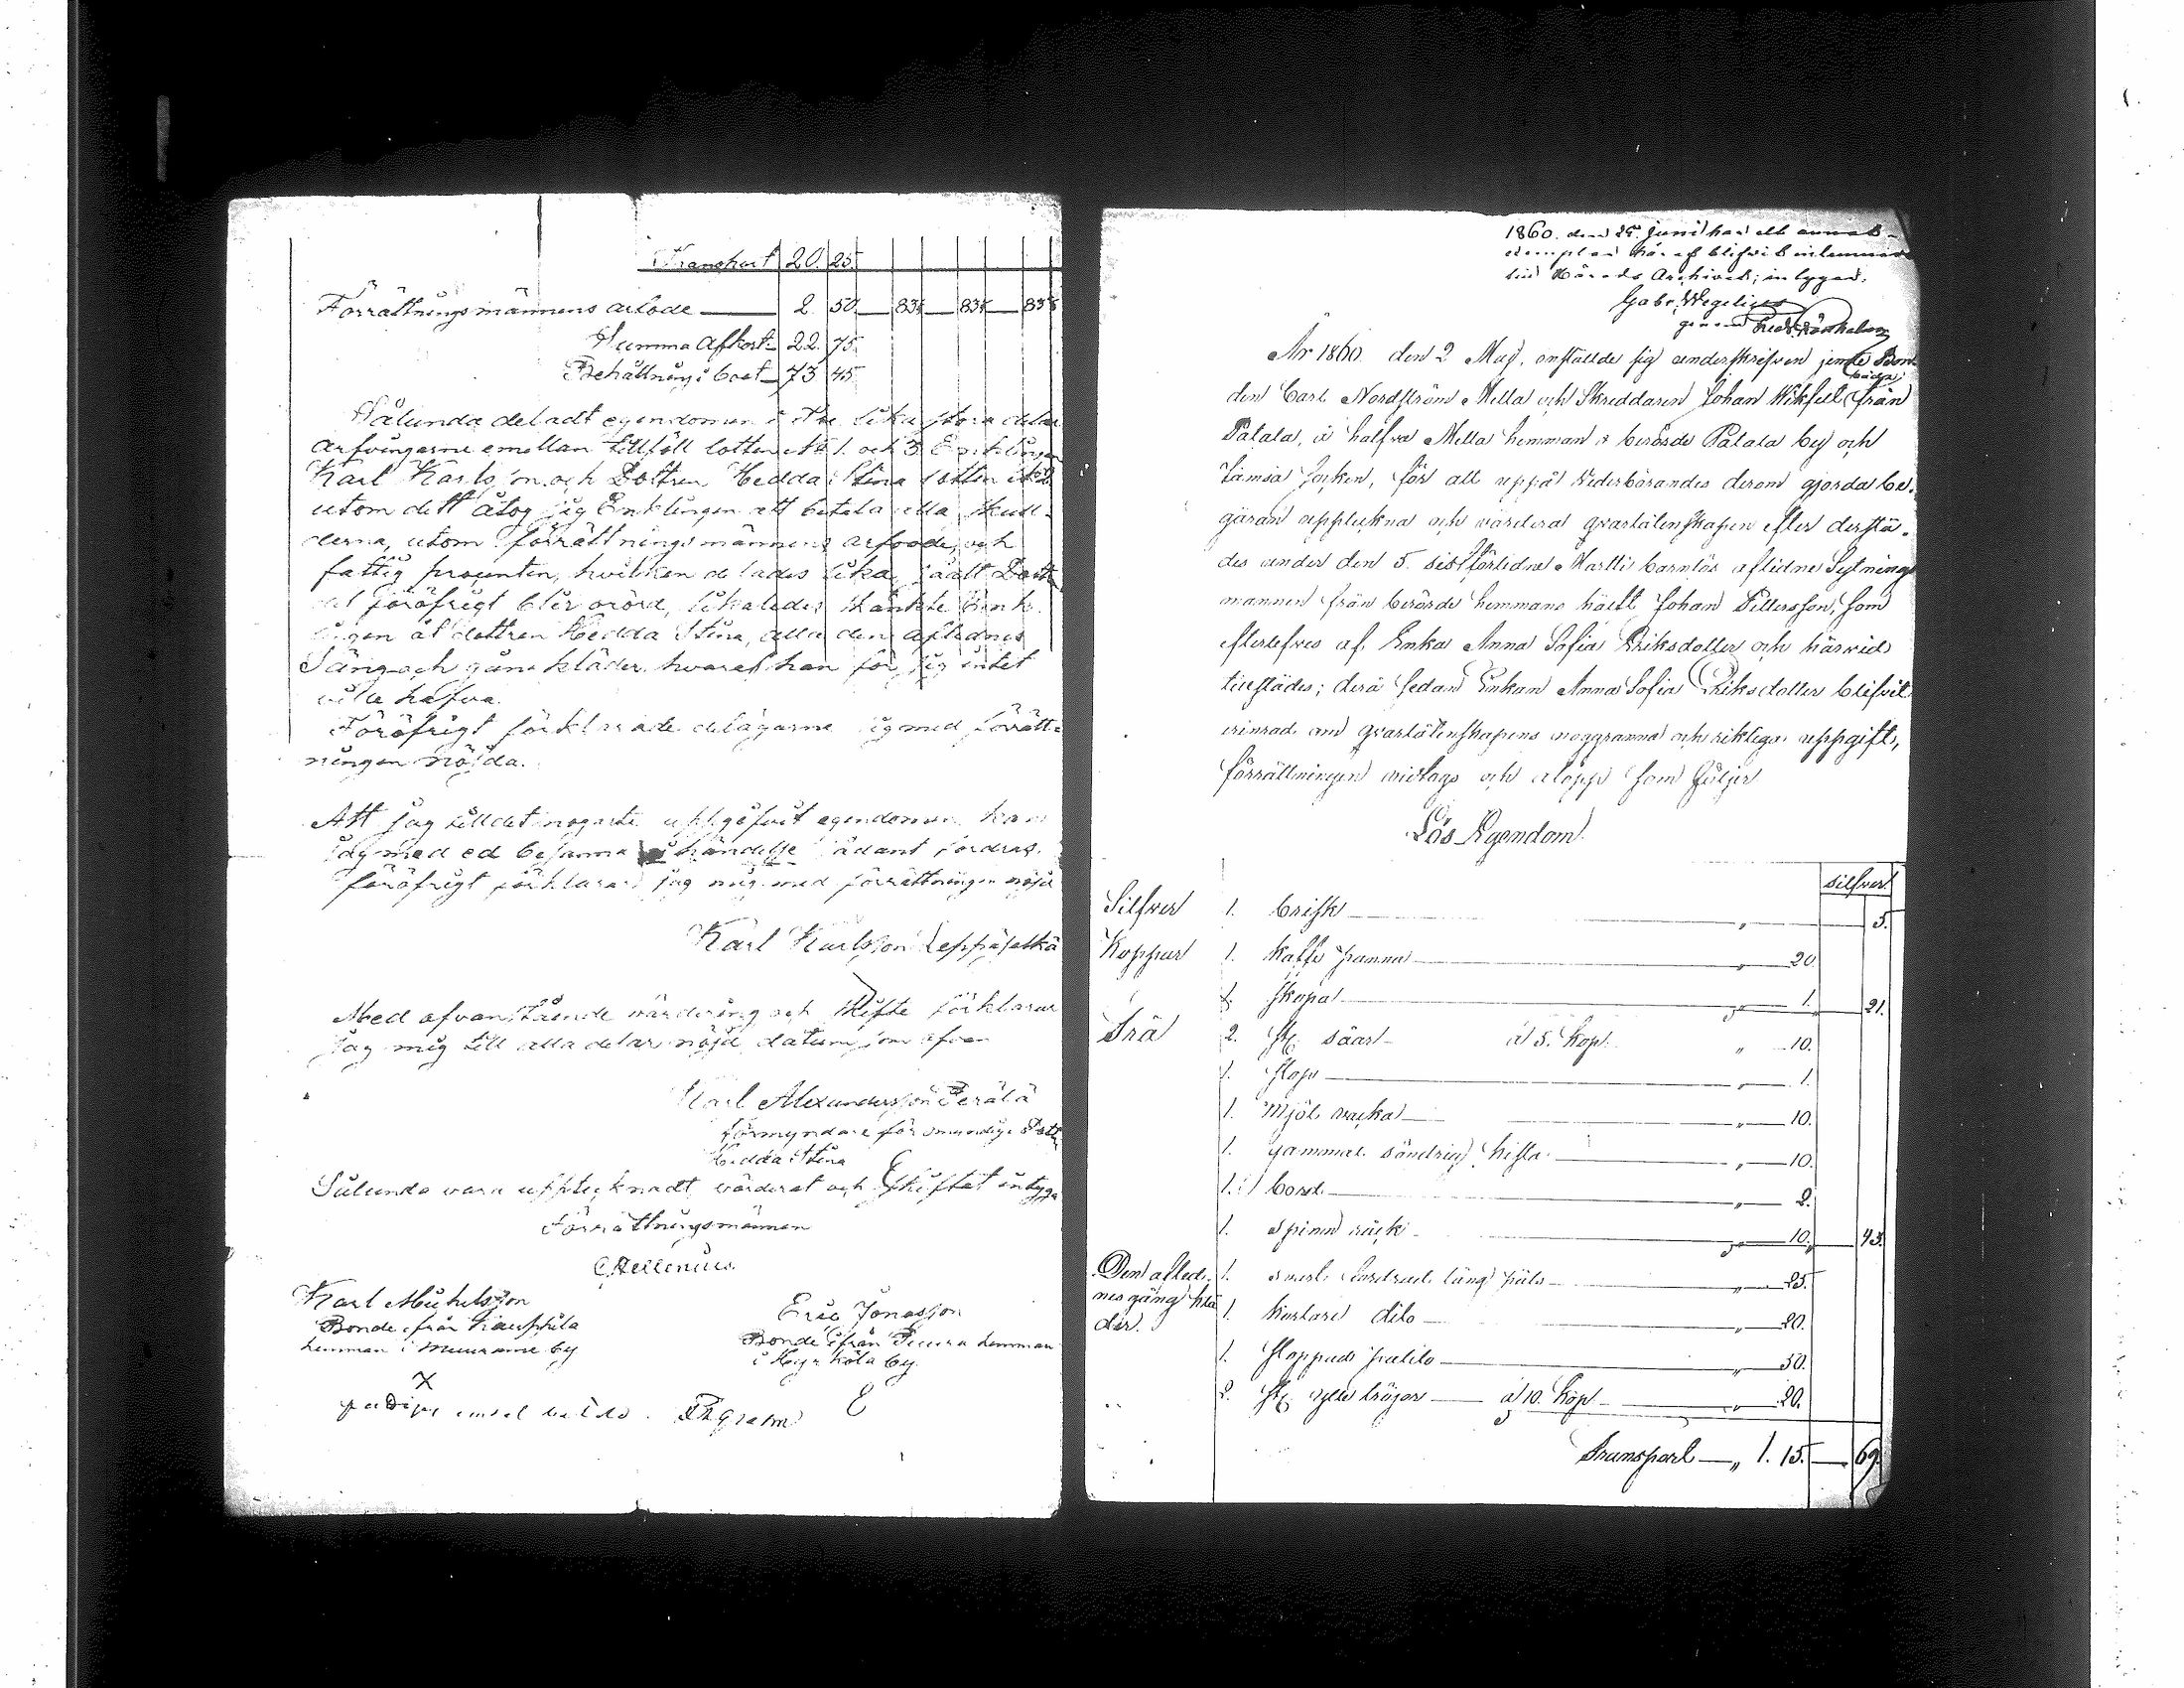 Transport 20. 25.
Förrättningsmännens arfode 2. 50. 83⅓ 83⅓ 83⅓
Summa Afkort 22. 75.
Behållning i boet 73 45
Sålunda deladt egendomen i tre lika stora delar
arfvingarne emellan tillföll lotten No 1. och 3 Enklingen
Karl Karlsson och Dottren Hedda Stina lotten
utom dett åtog sig Enklingen att betala alla skull-
derna, utom förrättningsmännens arfvode, och
fattig procenten, hvilken delades lika
det föröfrigt blir orörd, likaledes skänkte Enk-
lingen åt dottren Hedda Stina, alla den aflednes
Säng och gång kläder hvaraf han för sig intet
ville hafva.
Föröfrigt förklarade delägarne sig med förrätt-
ningen nöjda.
Att jag till det nogaste uppgifvit egendomen kan
jag med ed besanna i händelse sådant fordras.
föröfrigt förklarar jag mig med förrättningen nöjd
Karl Karlsson Leppäsalkä
Med ofvanstående värdering och skifte förklarar
jag mig till alla delar nöjd datum som ofvan
Karl Alexandersson Perälä
förmyndare för omyndige Dottr
Hedda Stina
Sålunda vara upptecknadt värderat och skiftat intyga
Förrättningsmännen
Karl Michelsson
Bonde från
hemman i Muurame by
Eric Jonasson
Bonde ifrån hemman
i by
X
E
1860. den 25 Junii har ett annat
exemplar häraf blifvit inlemnadt
till Härads Archivet; intygar.
Gabr. Wegelius
genom
År 1860. den 2 Maj, anställde sig underskrifven jemte Bon-
den Carl Nordström Mella och Skreddaren Johan Wikfelt (båda) från
Patala, å halfva Mella hemman i berörde Patala by och
Jämsä Socken, för att uppå Vederbörandes derom gjorda be-
gäran uppteckna och värdera qvarlåtenskapen efter derstä-
des under den 5. sistförlidne Martii barnlös aflidne Sytnings
mannen från berörde hemmans hälft Johan Pettersson, som
efterlefves af Enka Anna Sofia Eriksdotter och härvid
tillstädes; derå sedan Enkan Anna Sofia Eriksdotter blifvit
erinrad om qvarlåtenskapens noggranna och riktiga uppgift,
förrättningen vidtogs och aflopp som följer
Lös Egendom.
silfver
Silfver 1. brisk „ 5.
Koppar 1. kaffe panna „ 20.
1. skopa „ 1. 21.
Trä 2. st. såar à 5. kop. „ 10.
1. stop „ 1.
1. mjöl vacka „ 10.
1. gammal söndrig kista „ 10.
1. bord „ 2.
1. spinn råck „ 10. 43.
Den afled- 1. svart fodrad lång päls „ 25.
nes gång klä 1. kortare dito „ 20.
der. 1. stoppad palito „ 50.
2. st. ylle tröjor à 10. kop. „ 20.
Transport „ 1. 15. 69.